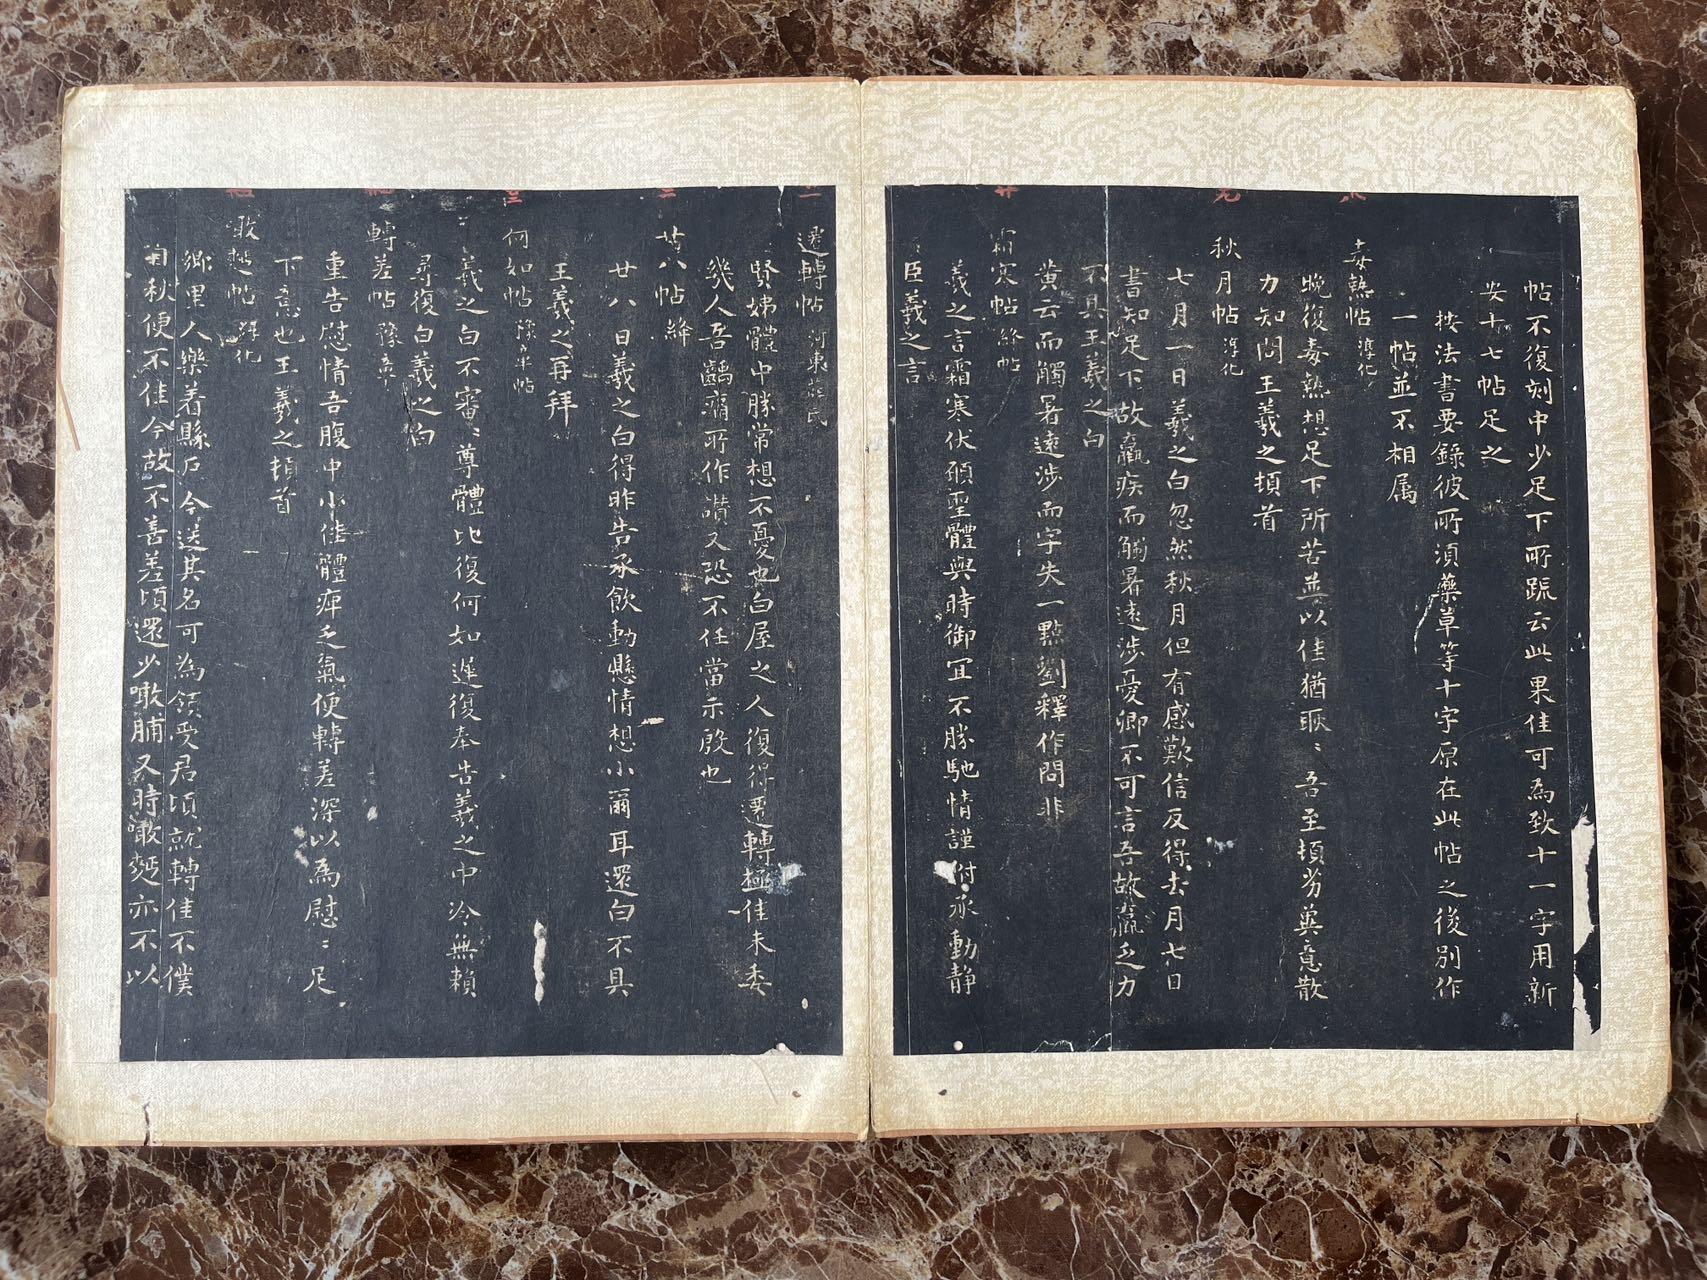 帖不復刻中少足下所疏云此果佳可為致十一字用新
安十七帖足之
按法書要錄彼所須藥草等十字原在此帖之後別作
一帖並不相属
毒熱帖 淳化
晚復毒熱想足下所苦並以佳猶耿〻吾至頓劣冀意散
力知問王羲之頓首
秋月帖 淳化
七月一日羲之白忽然秋月但有感歎信反得去月七日
書知足下故羸疾而觸暑遠涉憂卿不可言吾故羸乏力
不具王羲之白
黄云而觸暑遠涉而字失一點劉釋作問非
霜寒帖 絳帖
羲之言霜寒伏願聖體與時御宜不勝馳情謹附承動静
臣羲之言
遷轉帖 河東氏
賢姊體中勝常想不憂也白屋之人復得遷轉極佳未委
幾人吾齲痛所作讚又恐不任當示殷也
廿八帖 絳
廿八日羲之白得昨告承飲動懸情想小爾耳還白不具
王羲之再拜
何如帖 豫章帖
羲之白不審〻尊體比復何如遲復奉告羲之中冷無賴
尋復白羲之白
轉差帖 豫章
重告慰情吾腹中小佳體痺乏氣便轉差深以為慰〻足
下意也王羲之頓首
噉帖 淳化
鄉里人樂着縣户今送其名可為領受君頃就轉佳不僕
自秋便不佳今故不善差頃還少噉脯又時噉麪亦不以